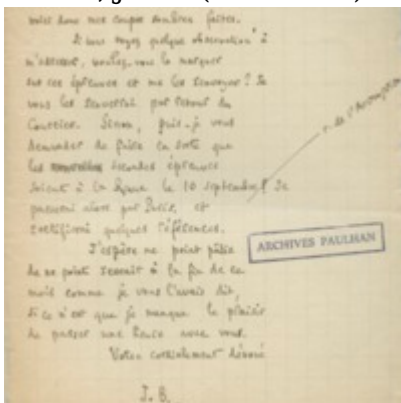 voici donc mes coupes sombres faites.
Si vous voyez quelque observation à
m'adresser, voulez-vous le marquer
sur ces épreuves et me les renvoyer ? Je
vous les renverrai par retour du
Courrier. Sinon, puis-je vous
demander de faire en sorte que
les secondes épreuves
soient à la Revue le 10 septembre ? Je
passerai alors par Paris, et
rectifierai quelques références.
r. de l'Assomption
J'espère ne point pâtir
de ne point revenir à la fin de ce
mois comme je vous l'avais dit,
si ce n'est que je manque le plaisir
de passer une heure avec vous.
Votre cordialement dévoué
J. B.
ARCHIVES PAULHAN